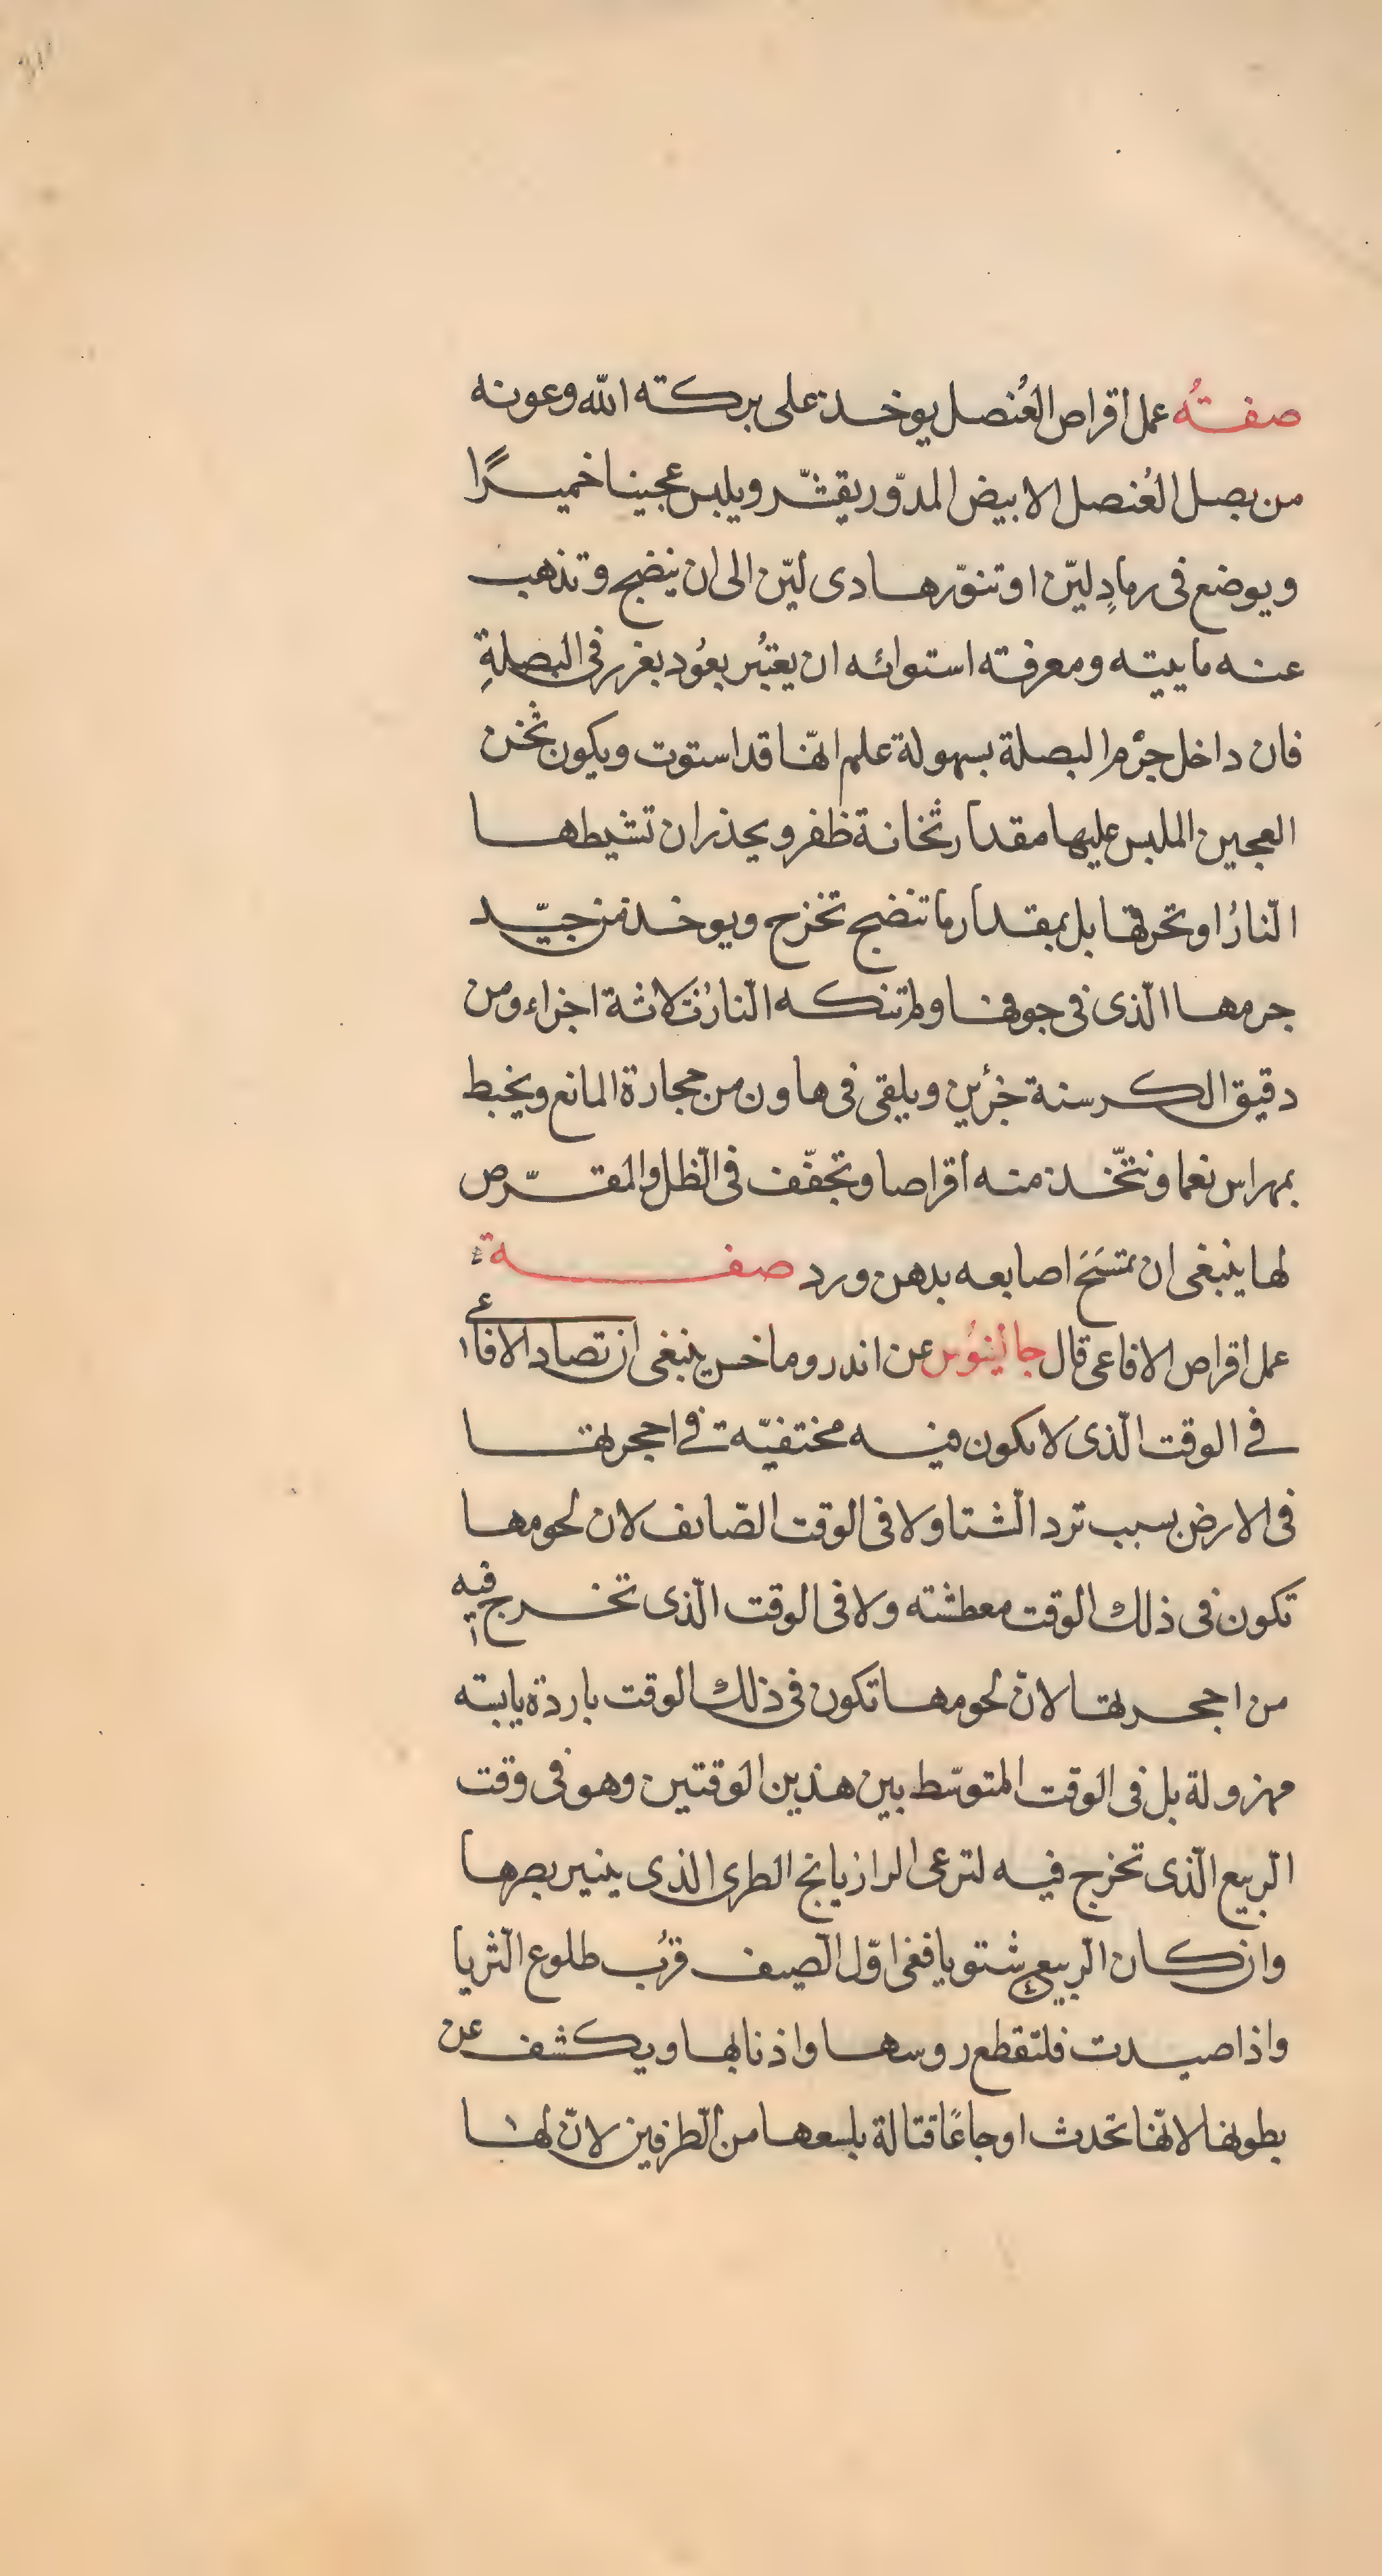 صفتهُ عمل اقراص العُنصل يوخذ على بركته الله وعونه
من بصل العُنصل الابيض المدوّر يقشّر ويلبس عجينا خميرًا
ويوضع فى رمادٍ ليّن او تنوّر هادى ليّن الى ان ينضج وتذهب
عنه ماييته ومعرفته استوائه ان يعتبُر بعُود بغرر فى البصلةِ
فان داخل جرْم البصلة بسهولة علم انّها قد استوت ويكون ثخن
العجين الملبس عليها مقدار ثخانة ظفر ويحذر ان تشيطها
النّارُ او تحرقها بل بمقدار ما تنضج تخرج ويوخذ من جيّد
جرمها الّذى فى جوفها ولم تنكه النّارُ ثلاثة اجزاء ومن
دقيق الكرسنة جزئين ويلقى فى هاون من حجارة المانع ويخبط
بمهراس نعما ونتّخذ منه اقراصا وتجفّف فى الظّل والمقرّص
لها ينبغى ان يمتسَحَ اصابعه بدهن ورد صفة
عمل اقراص الافاعى قال جالينوُس عن اندروماخس ينبغى ان تصاد الافاعى
فى الوقت الّذى لا يكون فيه مختفيّة فى احجرتها
فى الارض بسبب برد الشّتا ولا فى الوقت الصّايف لان لحومها
تكون فى ذلك الوقت معطشته ولا فى الوقت الّذى تخرج فيه
من احجرتها لانّ لحومها تكون فى ذلك الوقت باردة يابسته
مهزولة بل فى الوقت المتوسّط بين هذين الوقتين وهو فى وقت
الرّبيع الّذى تخرج فيه لترعى الرازيانج الطرى الذى ينير بصرها
وان كان الرّبيع شتويا ففى اوّل الصّيف قرُب طلوع الثّريا
واذا صيدت فلتقطع روسها واذنابها ويكشف عن
بطونها لانّها تحدث اوجاعًا قتالة بلسعها من الطّرفين لانّ لها